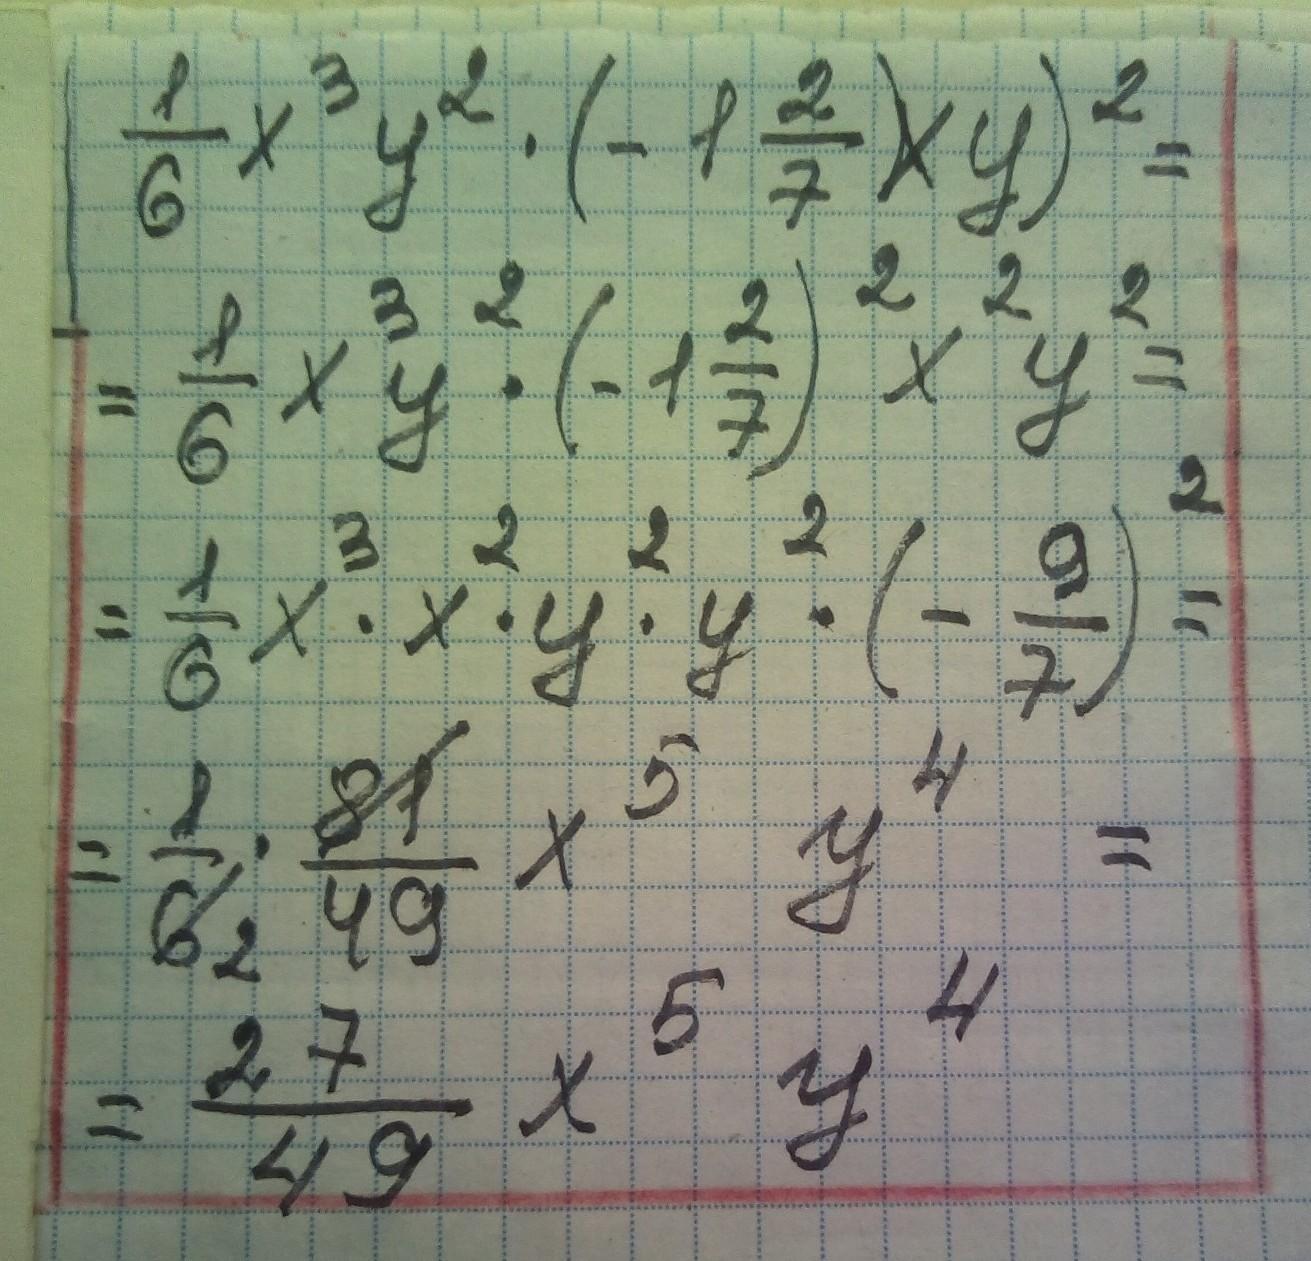 1/6 x³ y² · (-1 2/7)xy)² =
= 1/6 x³y² · (-1 2/7)² x² y² =
= 1/6 x³ · x² · y² · y² · (- 9/7)² =
= 1/6 2 · 81/49 x⁵ y⁴ =
= 27/49 x⁵ y⁴